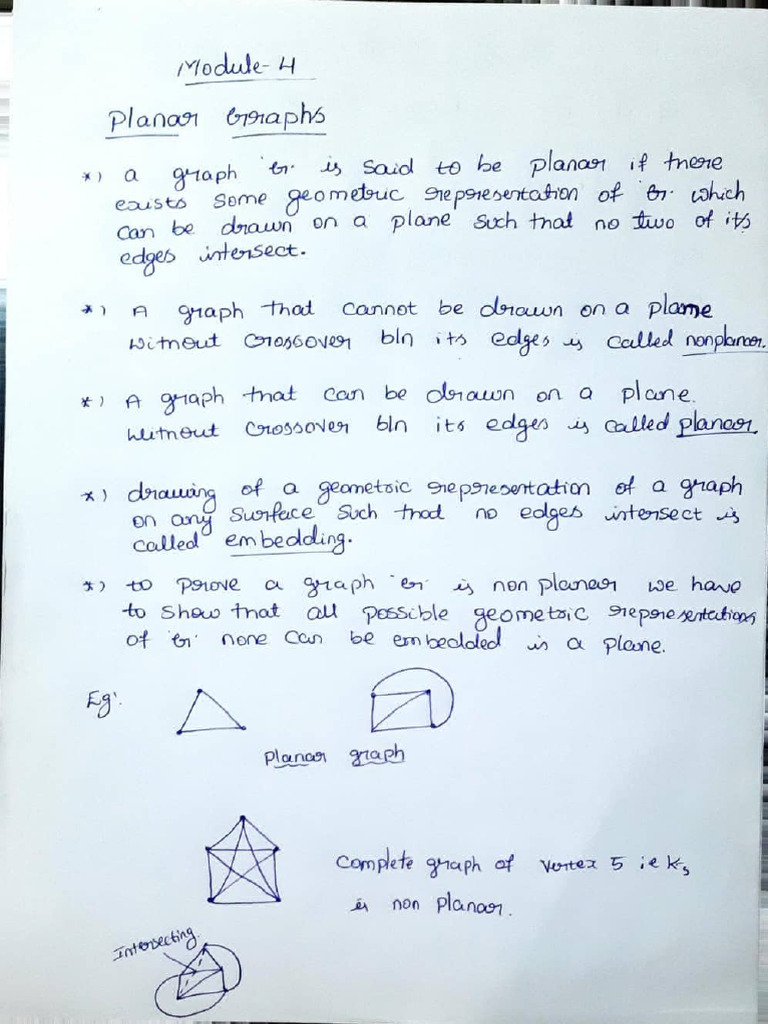 Module-4
Planar Graphs
*) a graph 'G' is said to be planar if there
exists some geometric representation of 'G' which
can be drawn on a plane such that no two of its
edges intersect.
*) A graph that cannot be drawn on a plane
without crossover b/n its edges is called nonplanar.
*) A graph that can be drawn on a plane.
without crossover b/n its edges is called planar.
*) drawing of a geometric representation of a graph
on any surface such that no edges intersect is
called embedding.
*) to prove a graph 'G' is non planar we have
to show that all possible geometric representations
of 'G' none can be embedded is a plane.
Eg:
planar graph
complete graph of vertex 5 ie K5
is non planar.
Intersecting